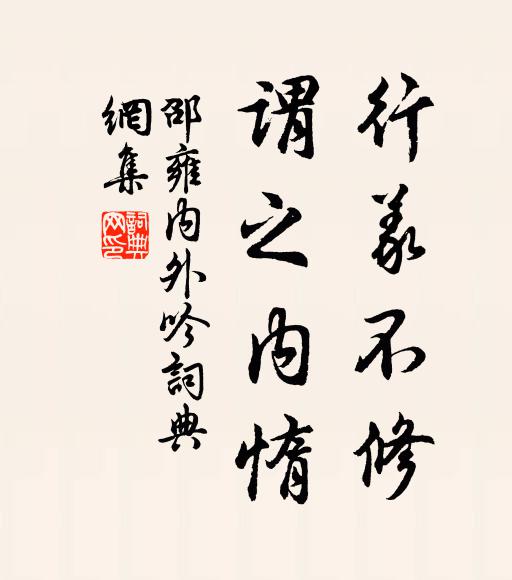 行義不修
謂之內惰
邵雍內外吟詞典
網集
詞典網印